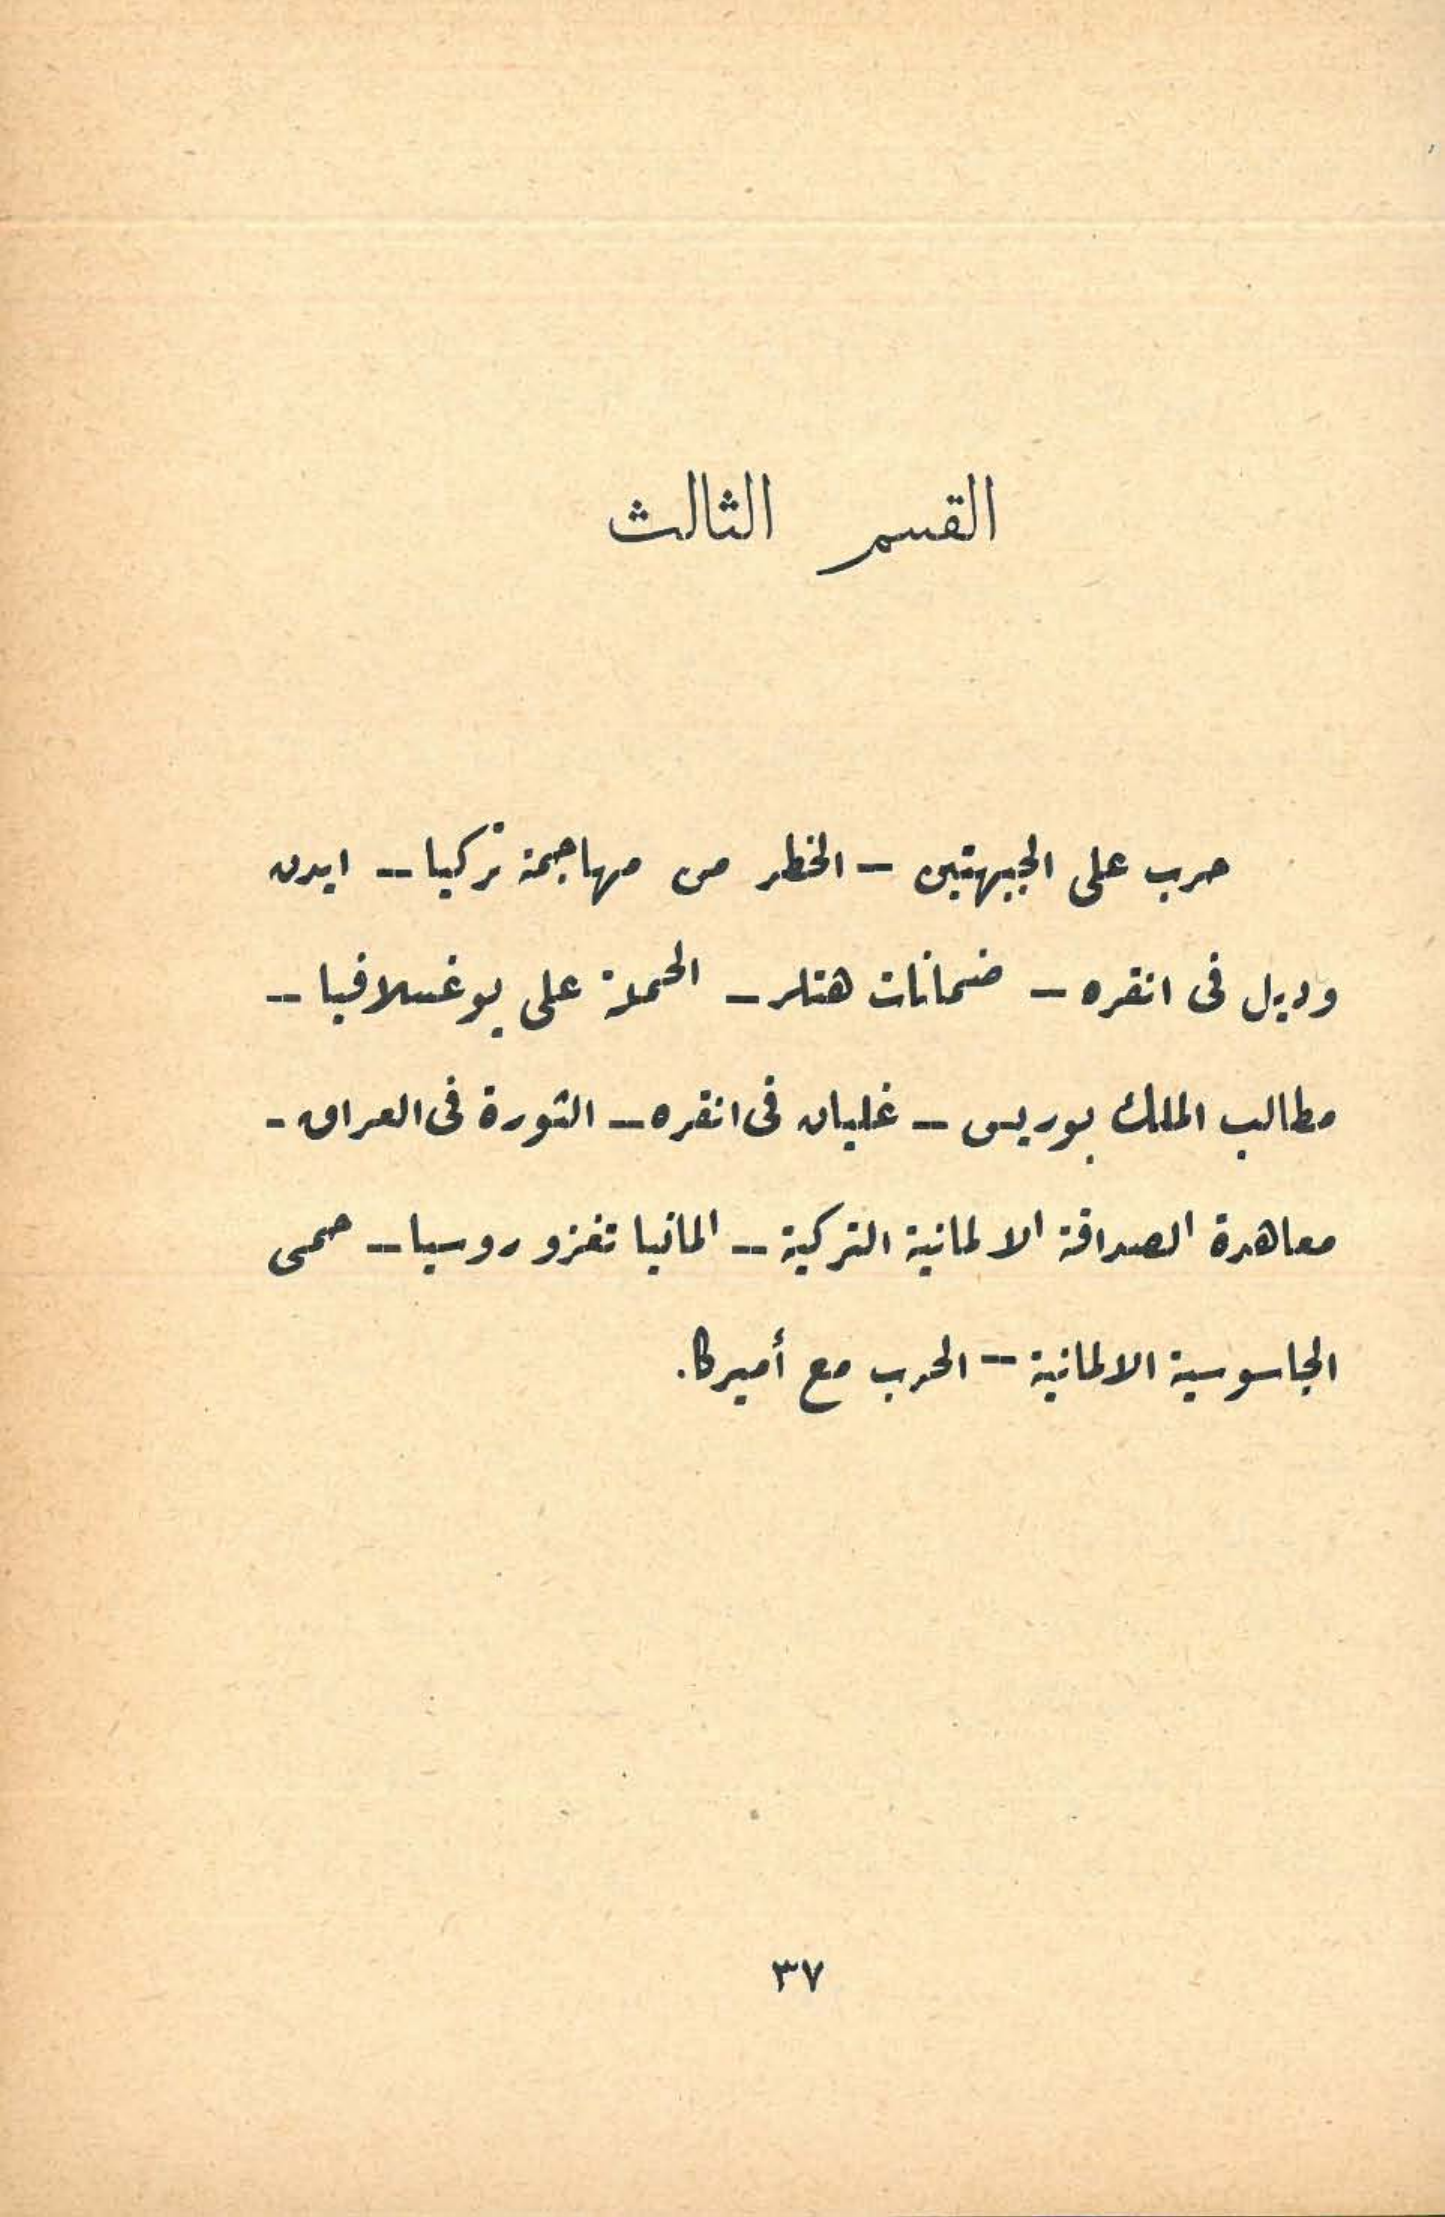 القسم الثالث
حرب على الجبهتين - الخطر من مهاجمة تركيا - ايدن
وديل فى انقره - ضمانات هتلر - الحملة على يوغسلافيا -
مطالب الملك بوريس - غليان فى انقره - الثورة فى العراق -
معاهدة الصداقة الالمانية التركية - المانيا تغزو روسيا - حمى
الجاسوسية الالمانية - الحرب مع أميركا.
٣٧